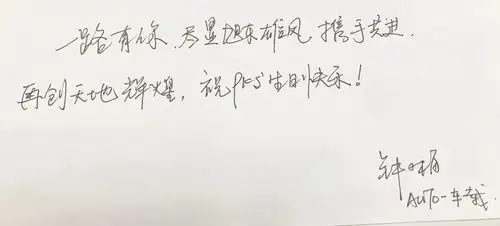 一路有你,尽显旭东雄风,携手共进,
再创天地辉煌,祝PES生日快乐!
钟
AUTO-车载